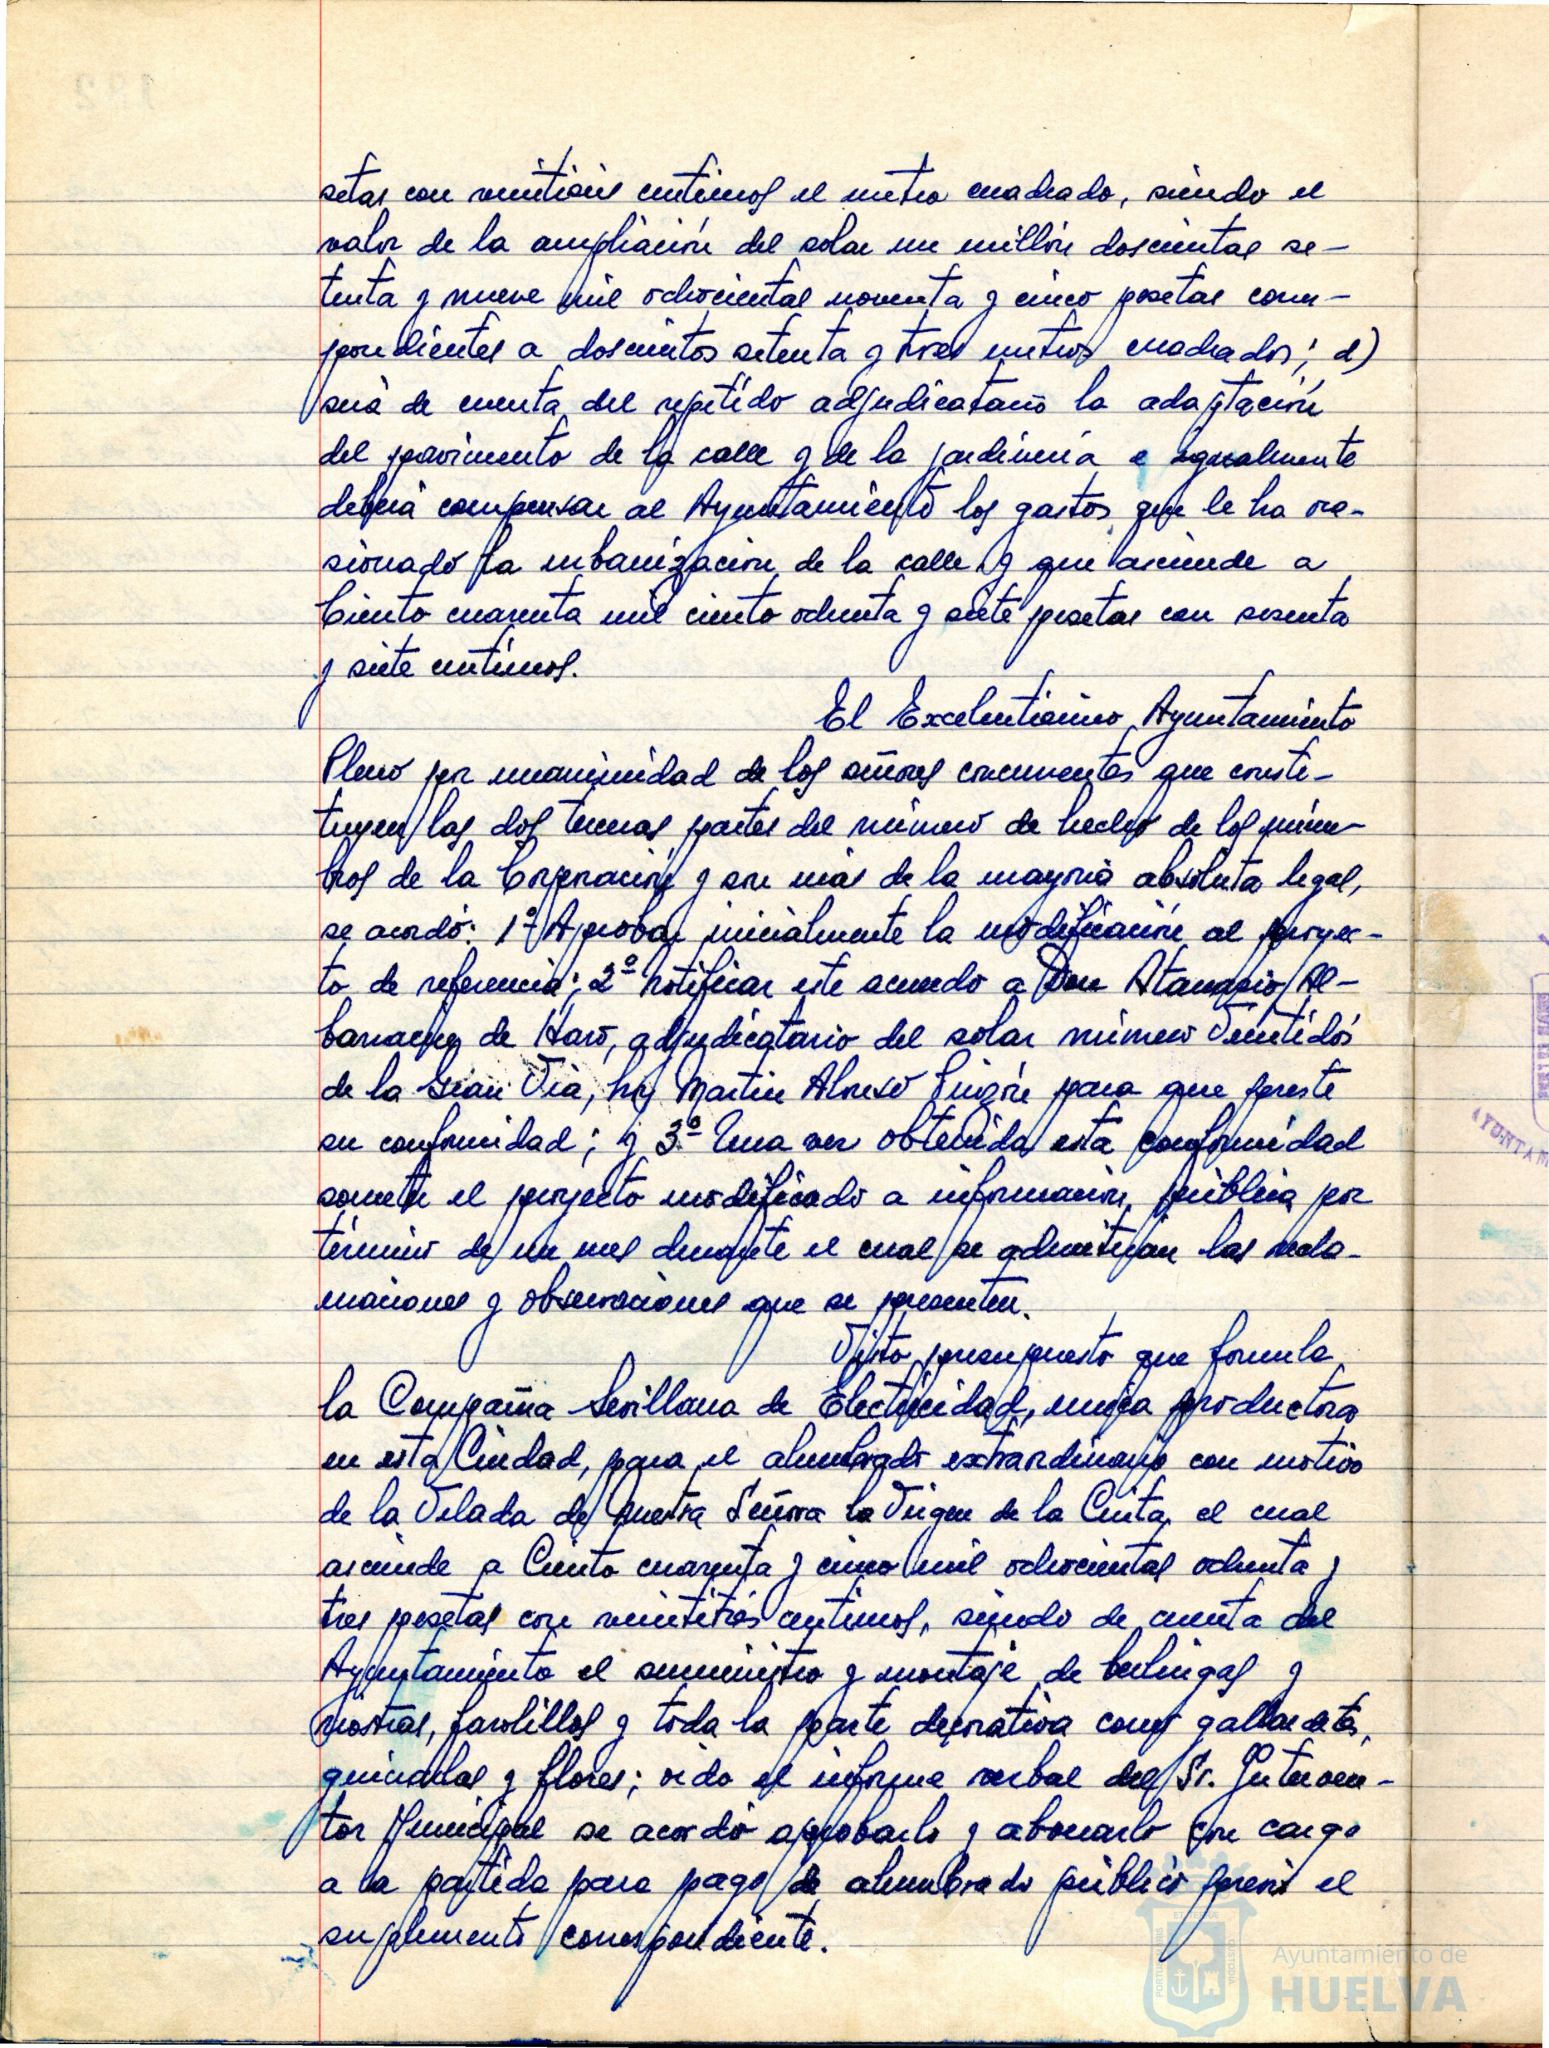 setas con veintiseis centimos el metro cuadrado, siendo el
valor de la ampliación del solar un millón doscientas se-
tenta y nueve mil ochocientas noventa y cinco pesetas corres-
pondientes a doscientos setenta y tres metros cuadrados; d)
será de cuenta del repetido adjudicatario la adaptación
del pavimento de la calle y de la jardineria e igualmente
deberá compensar al Ayuntamiento los gastos que le ha oca-
sionado la urbanización de la calle y que asciende a
Ciento cuarenta mil ciento ochenta y siete pesetas con sesenta
y siete centimos.
El Excelentisimo Ayuntamiento
Pleno por unanimidad de los señores concurrentes que consti-
tuyen las dos terceras partes del número de hecho de los miem-
bros de la Corporación y son más de la mayoria absoluta legal,
se acordó: 1º Aprobar inicialmente la modificación al proyec-
to de referencia; 2º Notificar este acuerdo a Don Atanasio Al-
barracin de Haro, adjudicatario del solar número Veintidós
de la Gran Via, hoy Martin Alonso Pinzón para que preste
su conformidad; y 3º Una vez obtenida esta conformidad
someter el proyecto modificado a información pública por
término de un mes durante el cual se admitirán las recla-
maciones y observaciones que se presenten.
Visto presupuesto que formula
la Compañia Sevillana de Electricidad, unica productora
en esta Ciudad, para el alumbrado extraordinario con motivo
de la Velada de Nuestra Señora la Virgen de la Cinta, el cual
asciende a Ciento cuarenta y cinco mil ochocientas ochenta y
tres pesetas con veintitrés centimos, siendo de cuenta del
Ayuntamiento el suministro y montaje de berlingas y
riostras, farolillos y toda la parte decorativa como gallardetes,
guirnaldas y flores; oido el informe verbal del Sr. Interven-
tor Municipal se acordó aprobarlo y abonarlo con cargo
a la partida para pago de alumbrado público previo el
suplemento correspondiente.
AYUNTAM
Ayuntamiento de
HUELVA